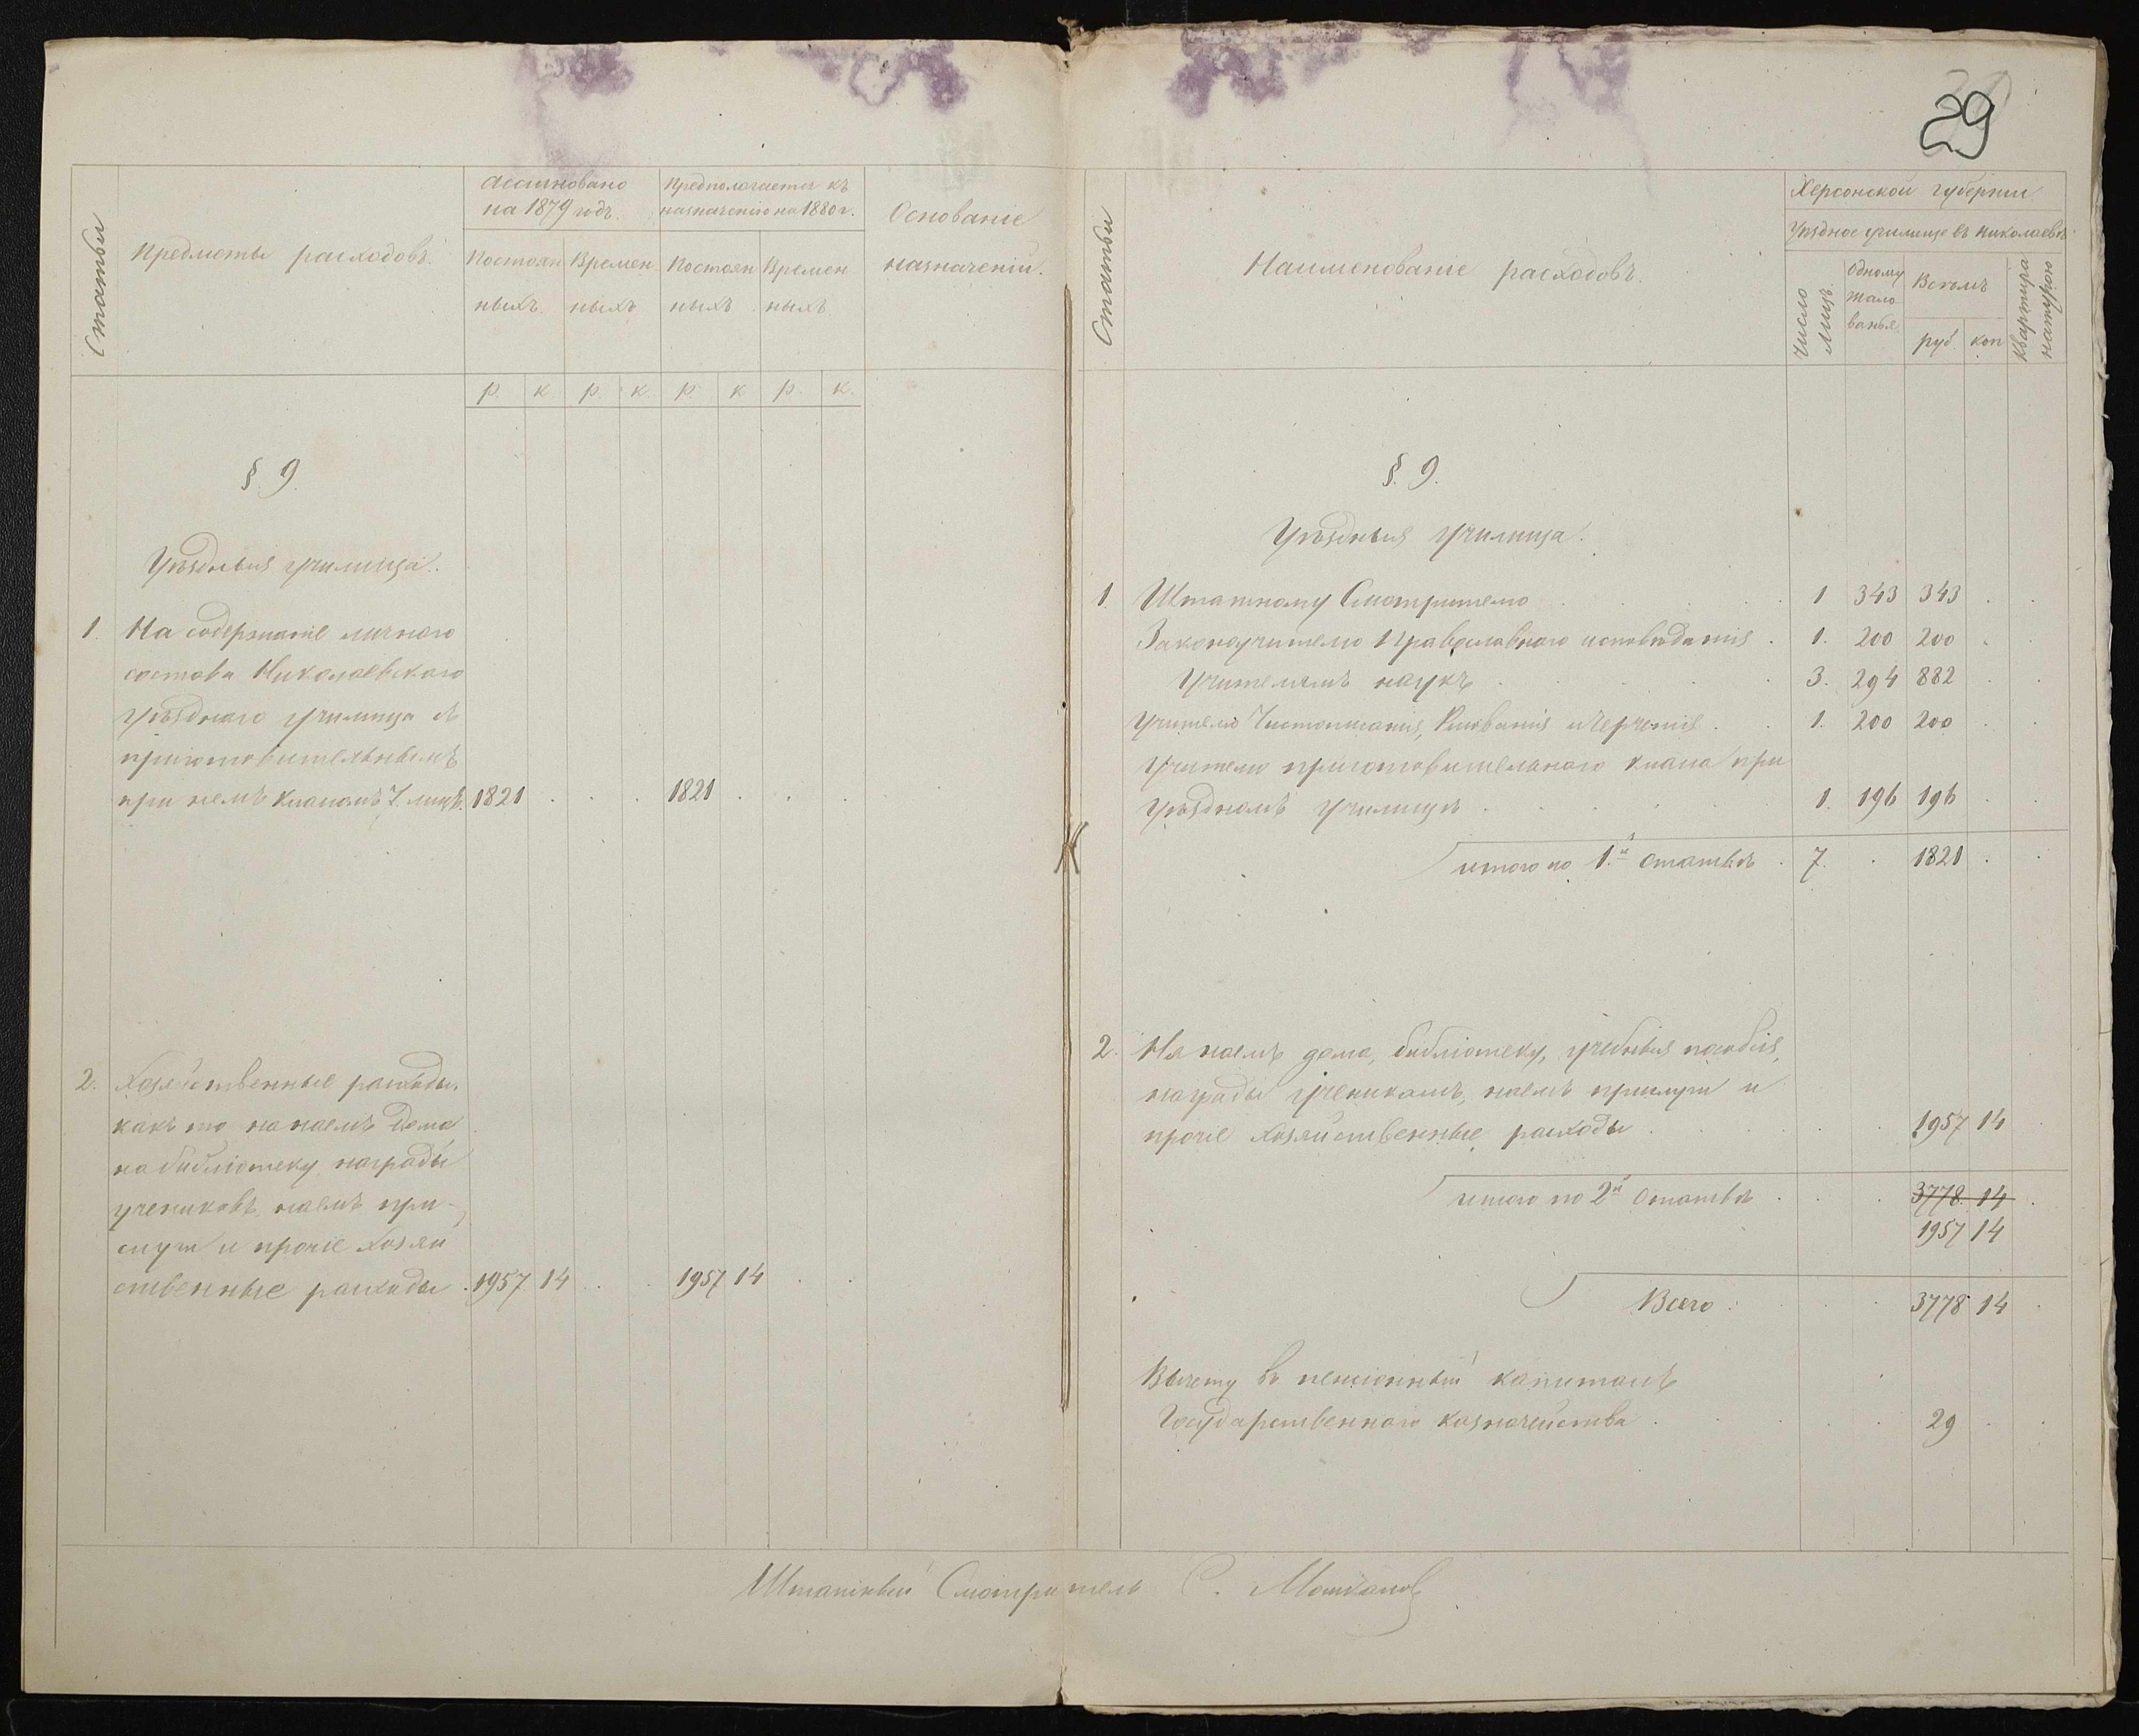 29
Статьи
Предметы расходовъ.
Ассигновано
на 1879 годъ.
Предполагается къ
назначенію на 1880 г.
Основаніе
назначеній.
Постоян
ныхъ
Времен
ныхъ
Постоян
ныхъ
Времен
ныхъ
р. к. р. к. р. к. р. к.
§. 9.
Уѣздныя училища.
1. На содержаніе личнаго
состава Николаевскаго
уѣзднаго училища съ
приготовительнымъ
при немъ класомъ 7 лицъ. 1821 . . . 1821 . . .
2. Хозяйственные расходы,
какъ то на наемъ дома
на библіотеку награды
учениковъ наемъ при-
слуги и прочіе хозяй
ственные расходы . 1957 14 . . 1957 14 . .
Статьи
Наименованіе расходовъ.
Херсонской губерніи
Уѣздное училище въ Николаевѣ
Число
лицъ
Одному
жало
ванья
Всѣмъ
руб. коп
Квартира
натурою
§. 9.
Уѣздныя училища.
1. Штатному Смотрителю . . 1 343 343 . .
Законоучителю Православнаго исповѣданія . 1. 200 200 .
Учителямъ наукъ . . . 3. 294 882 . .
Учителю Чистописанія, Рисованія и черченія . . 1. 200 200 . .
Учителю приготовительнаго класа при
Уѣздномъ училищѣ . . . 1. 196 196 . .
итого по 1.й статьѣ . 7. . 1821 . .
2. На наемъ дома, библіотеку, учебныя пособія,
награды ученикамъ, наемъ прислуги и
прочіе хозяйственные расходы . . . 1957 14 .
итого по 2й статьѣ . . . 3778. 14 .
1957 14
Всего . . . 3778 14 .
Вычету въ пенсіонный капиталъ
Государственнаго казначейства . . . 29 . .
Штатный Смотритель С.